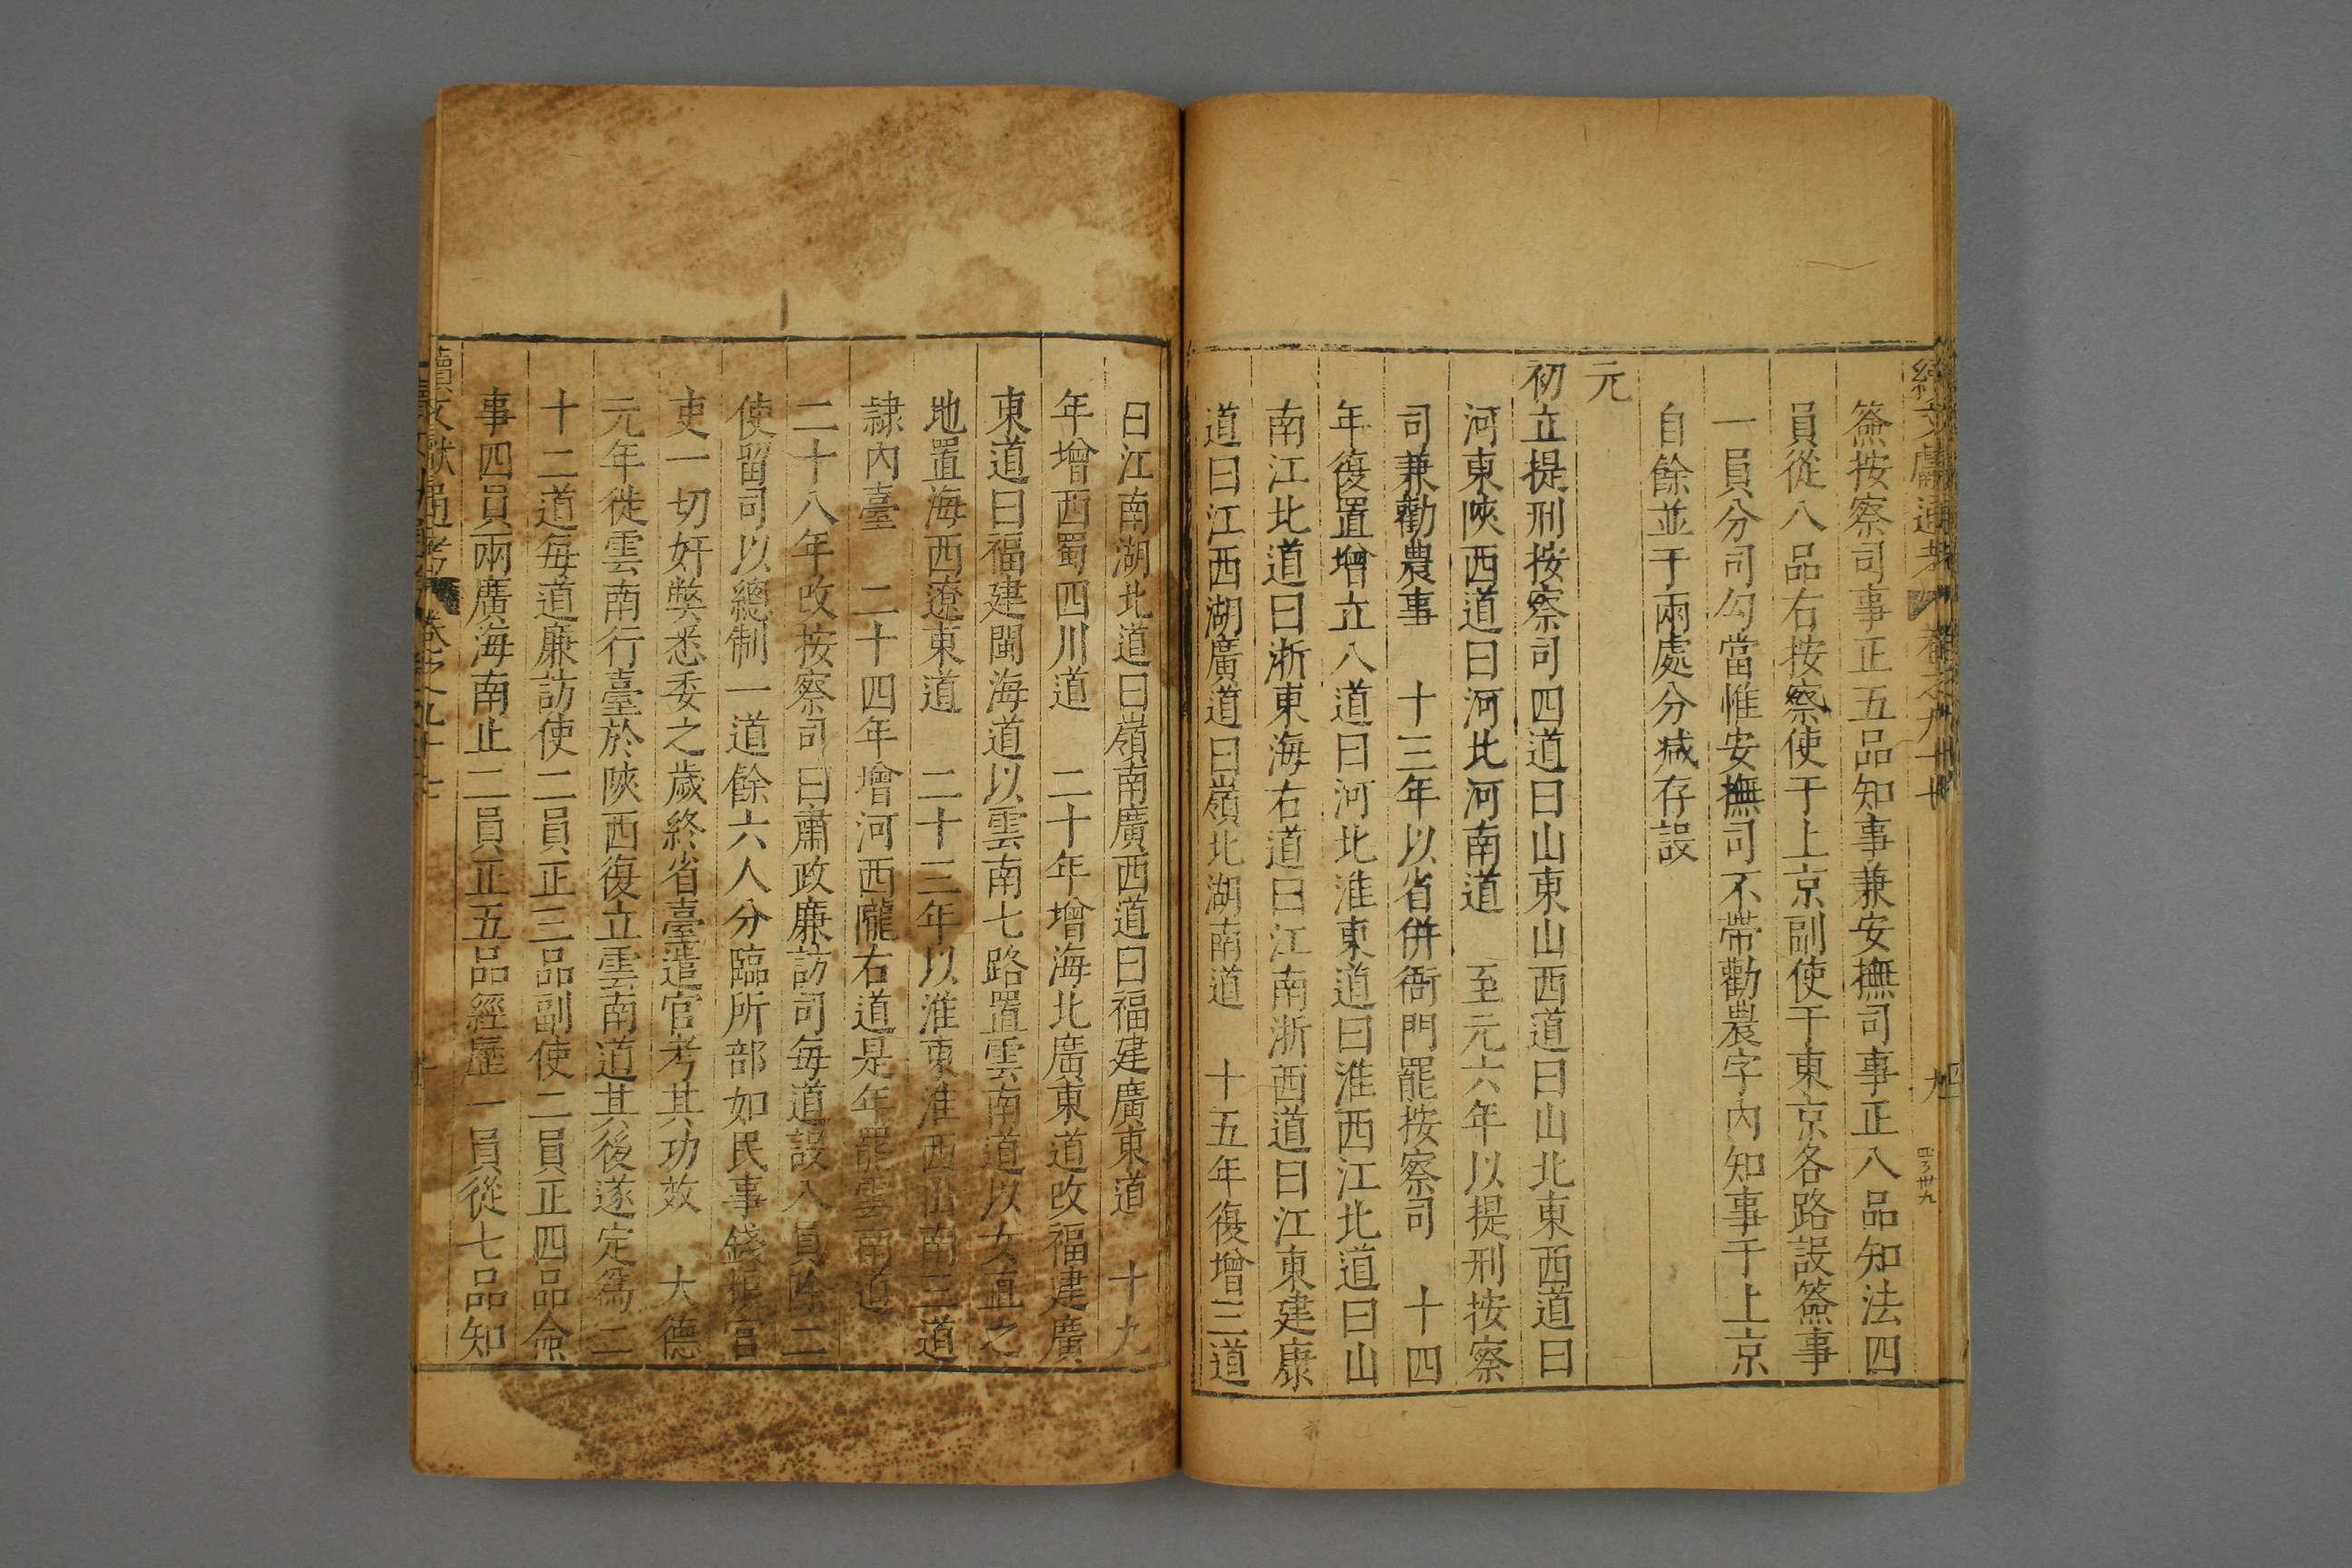 續文獻通考 卷之九十七
簽按察司事正五品知事兼安撫司事正八品知法四
員從八品右按察使于上京副使于東京各路設簽事
一員分司勾當惟安撫司不帶勸農字內知事于上京
自餘並于兩處分減存設
元
初立提刑按察司四道曰山東山西道曰山北東西道曰
河東陝西道曰河北河南道 至元六年以提刑按察
司兼勸農事 十三年以省併衙門罷按察司 十四
年復置增立八道曰河北淮東道曰淮西江北道曰山
南江北道曰浙東海右道曰江南浙西道曰江東建康
道曰江西湖廣道曰嶺北湖南道 十五年復增三道
曰江南湖北道曰嶺南廣西道曰福建廣東道 十九
年增西蜀四川道 二十年增海北廣東道改福建廣
東道曰福建閩海道以雲南七路置雲南道以女直之
地置海西遼東道 二十三年以淮東淮西山南三道
隷內臺 二十四年增河西隴右道是年罷雲南道
二十八年改按察司曰肅政廉訪司每道設八員除二
使留司以總制一道餘六人分臨所部如民事錢榖官
吏一切奸弊悉委之歲終省臺遣官考其功效 大德
元年徙雲南行臺於陝西復立雲南道其後遂定爲二
十二道每道廉訪使二員正三品副使二員正四品僉
事四員兩廣海南止二員正五品經歷一員從七品知
續文獻通考 卷之九十七